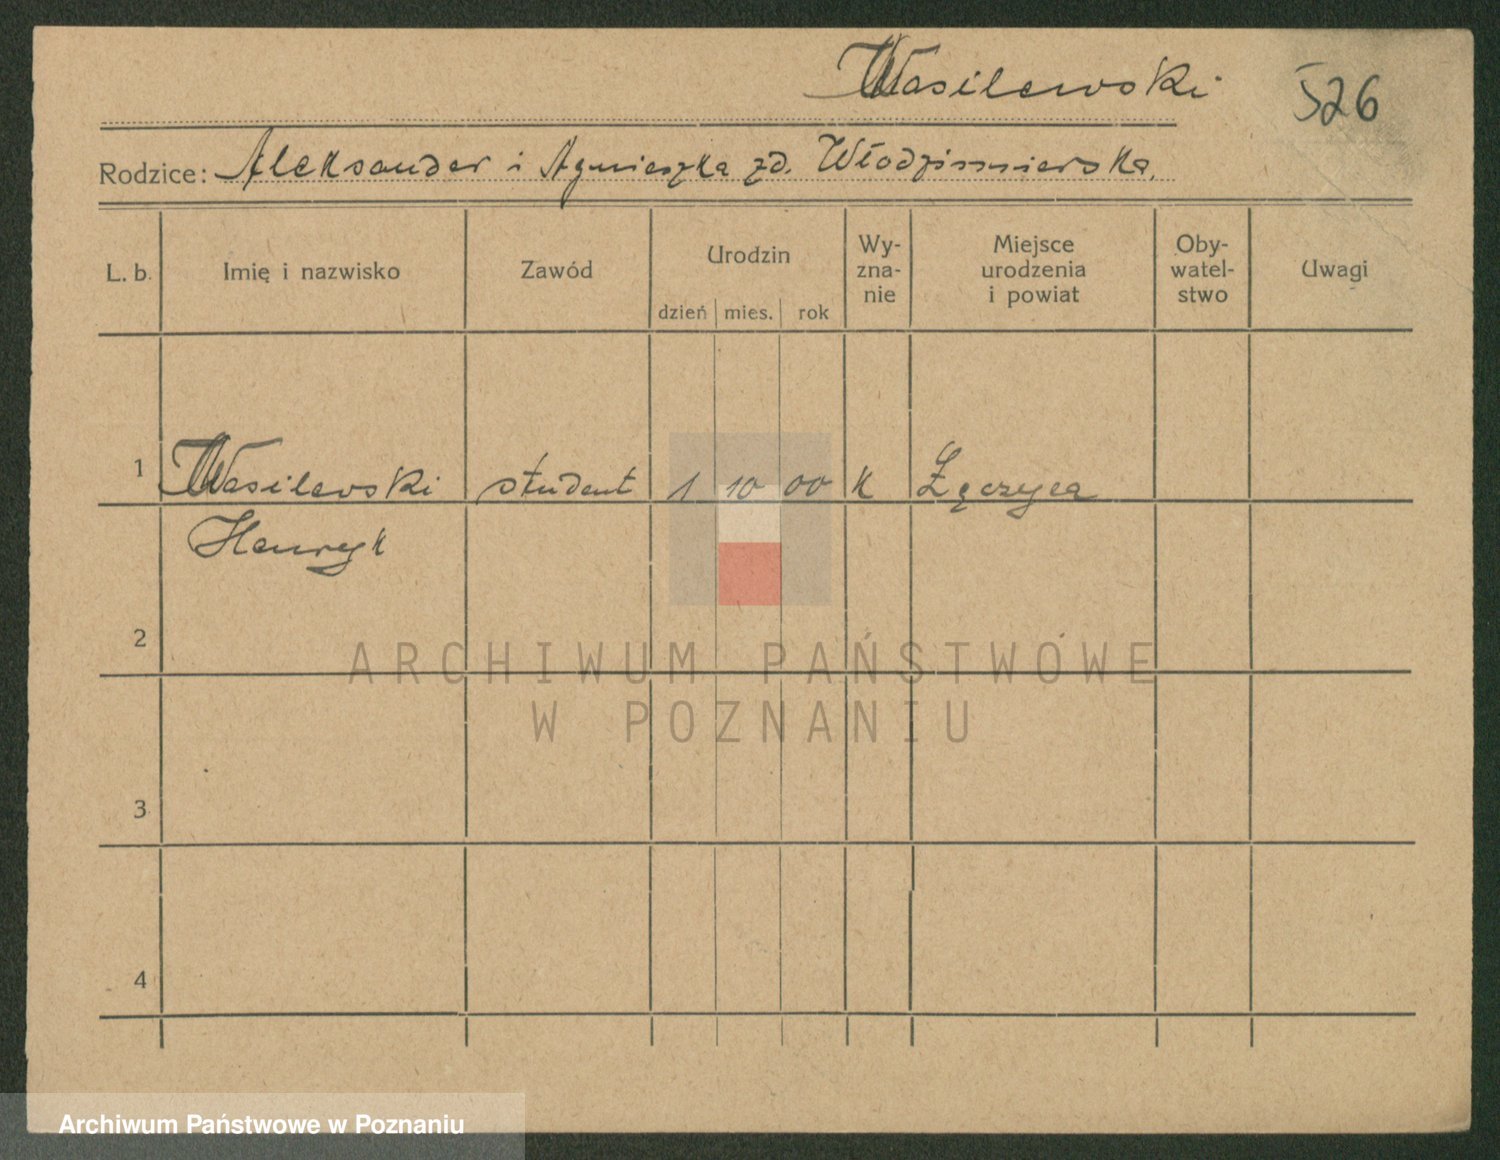 Wasilewski 526
Rodzice: Aleksander i Agnieszka zd. Włodzimierska.
L. b. Imię i nazwisko Zawód Urodzin dzień mies. rok Wy-zna-nie Miejsce urodzenia i powiat Oby-watel-stwo Uwagi
1 Wasilewski student 1 10 00 K Łęczyca
Henryk
2
ARCHIWUM PAŃSTWOWE
W POZNANIU
3
4
Archiwum Państwowe w Poznaniu